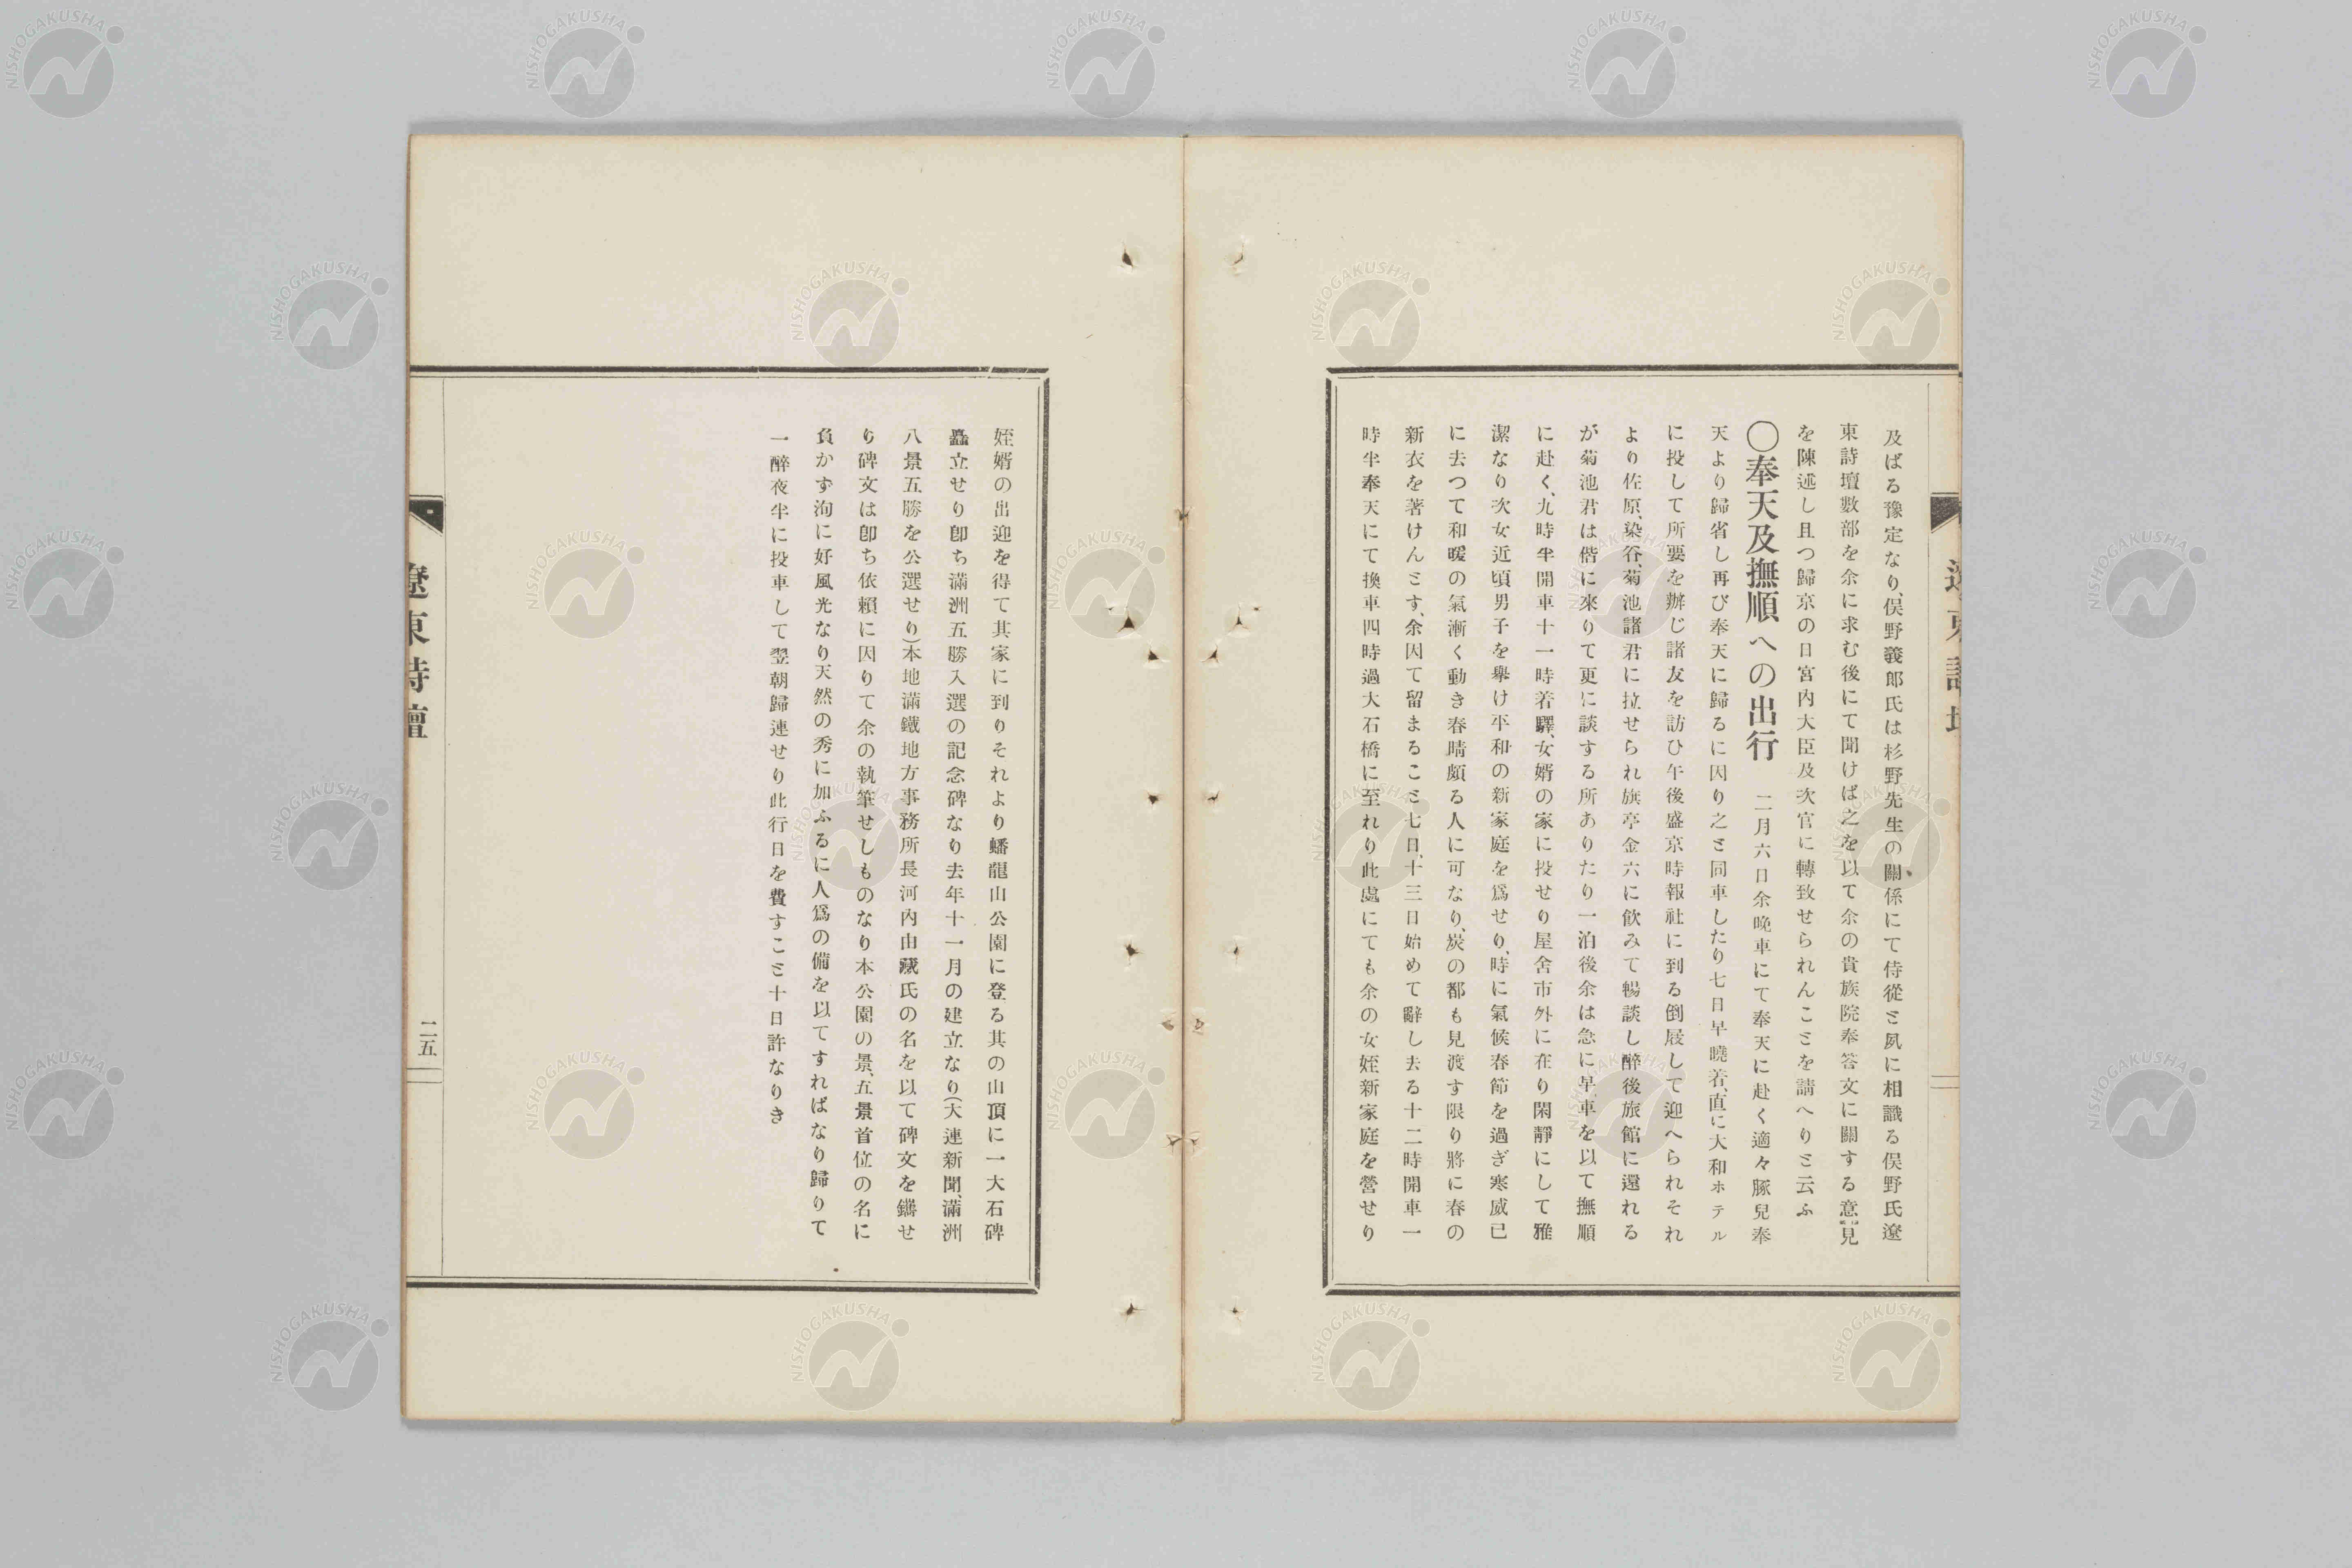 及ばる豫定なり、俣野義郎氏は杉野先生の關係にて侍從と夙に相識る俣野氏遼
東詩壇數部を余に求む後にて聞けば之を以て余の貴族院奉答文に關する意見
を陳述し且つ歸京の日宮內大臣及次官に轉致せられんことを請へりと云ふ
〇奉天及撫順への出行　二月六日余晩車にて奉天に赴く適々豚兒奉
天より歸省し再び奉天に歸るに因り之と同車したり七日早曉若、直に大和ホテル
に投して所要を辦じ諸友を訪ひ午後盛京時報社に到る倒屐して迎へられそれ
より佐原、染谷、菊池諸君に拉せられ旗亭金六に飮みて暢談し醉後旅館に還れる
が菊池君は偕に來りて更に談する所ありたり一泊後余は急に早車を以て撫順
に赴く、九時半開車十一時若驛、女婿の家に投せり屋舍市外に在り閑靜にして雅
潔なり次女近頃男子を擧け平和の新家庭を爲せり、時に氣候春節を過ぎ寒威已
に去つて和暖の氣漸く動き春晴頗る人に可なり、炭の都も見渡す限り將に春の
新衣を著けんとす、余因て留まること七日、十三日始めて辭し去る十二時開車一
時半奉天にて換車四時過大石橋に至れり此處にても余の女姪新家庭を營せり
姪婿の出迎を得て其家に到りそれより蟠龍山公園に登る其の山頂に一大石碑
矗立せり卽ち滿洲五勝入選の記念碑なり去年十一月の建立なり(大連新聞、滿洲
八景五勝を公選せり)本地滿鐵地方事務所長河內由藏氏の名を以て碑文を鐫せ
り碑文は卽ち依賴に因りて余の執筆せしものなり本公園の景、五景首位の名に
負かず洵に好風光なり天然の秀に加ふるに人爲の備を以てすればなり歸りて
一醉夜半に投車して翌朝歸連せり此行日を費すこと十日許なりき
遼東詩壇
二五
NISHOGAKUSHA